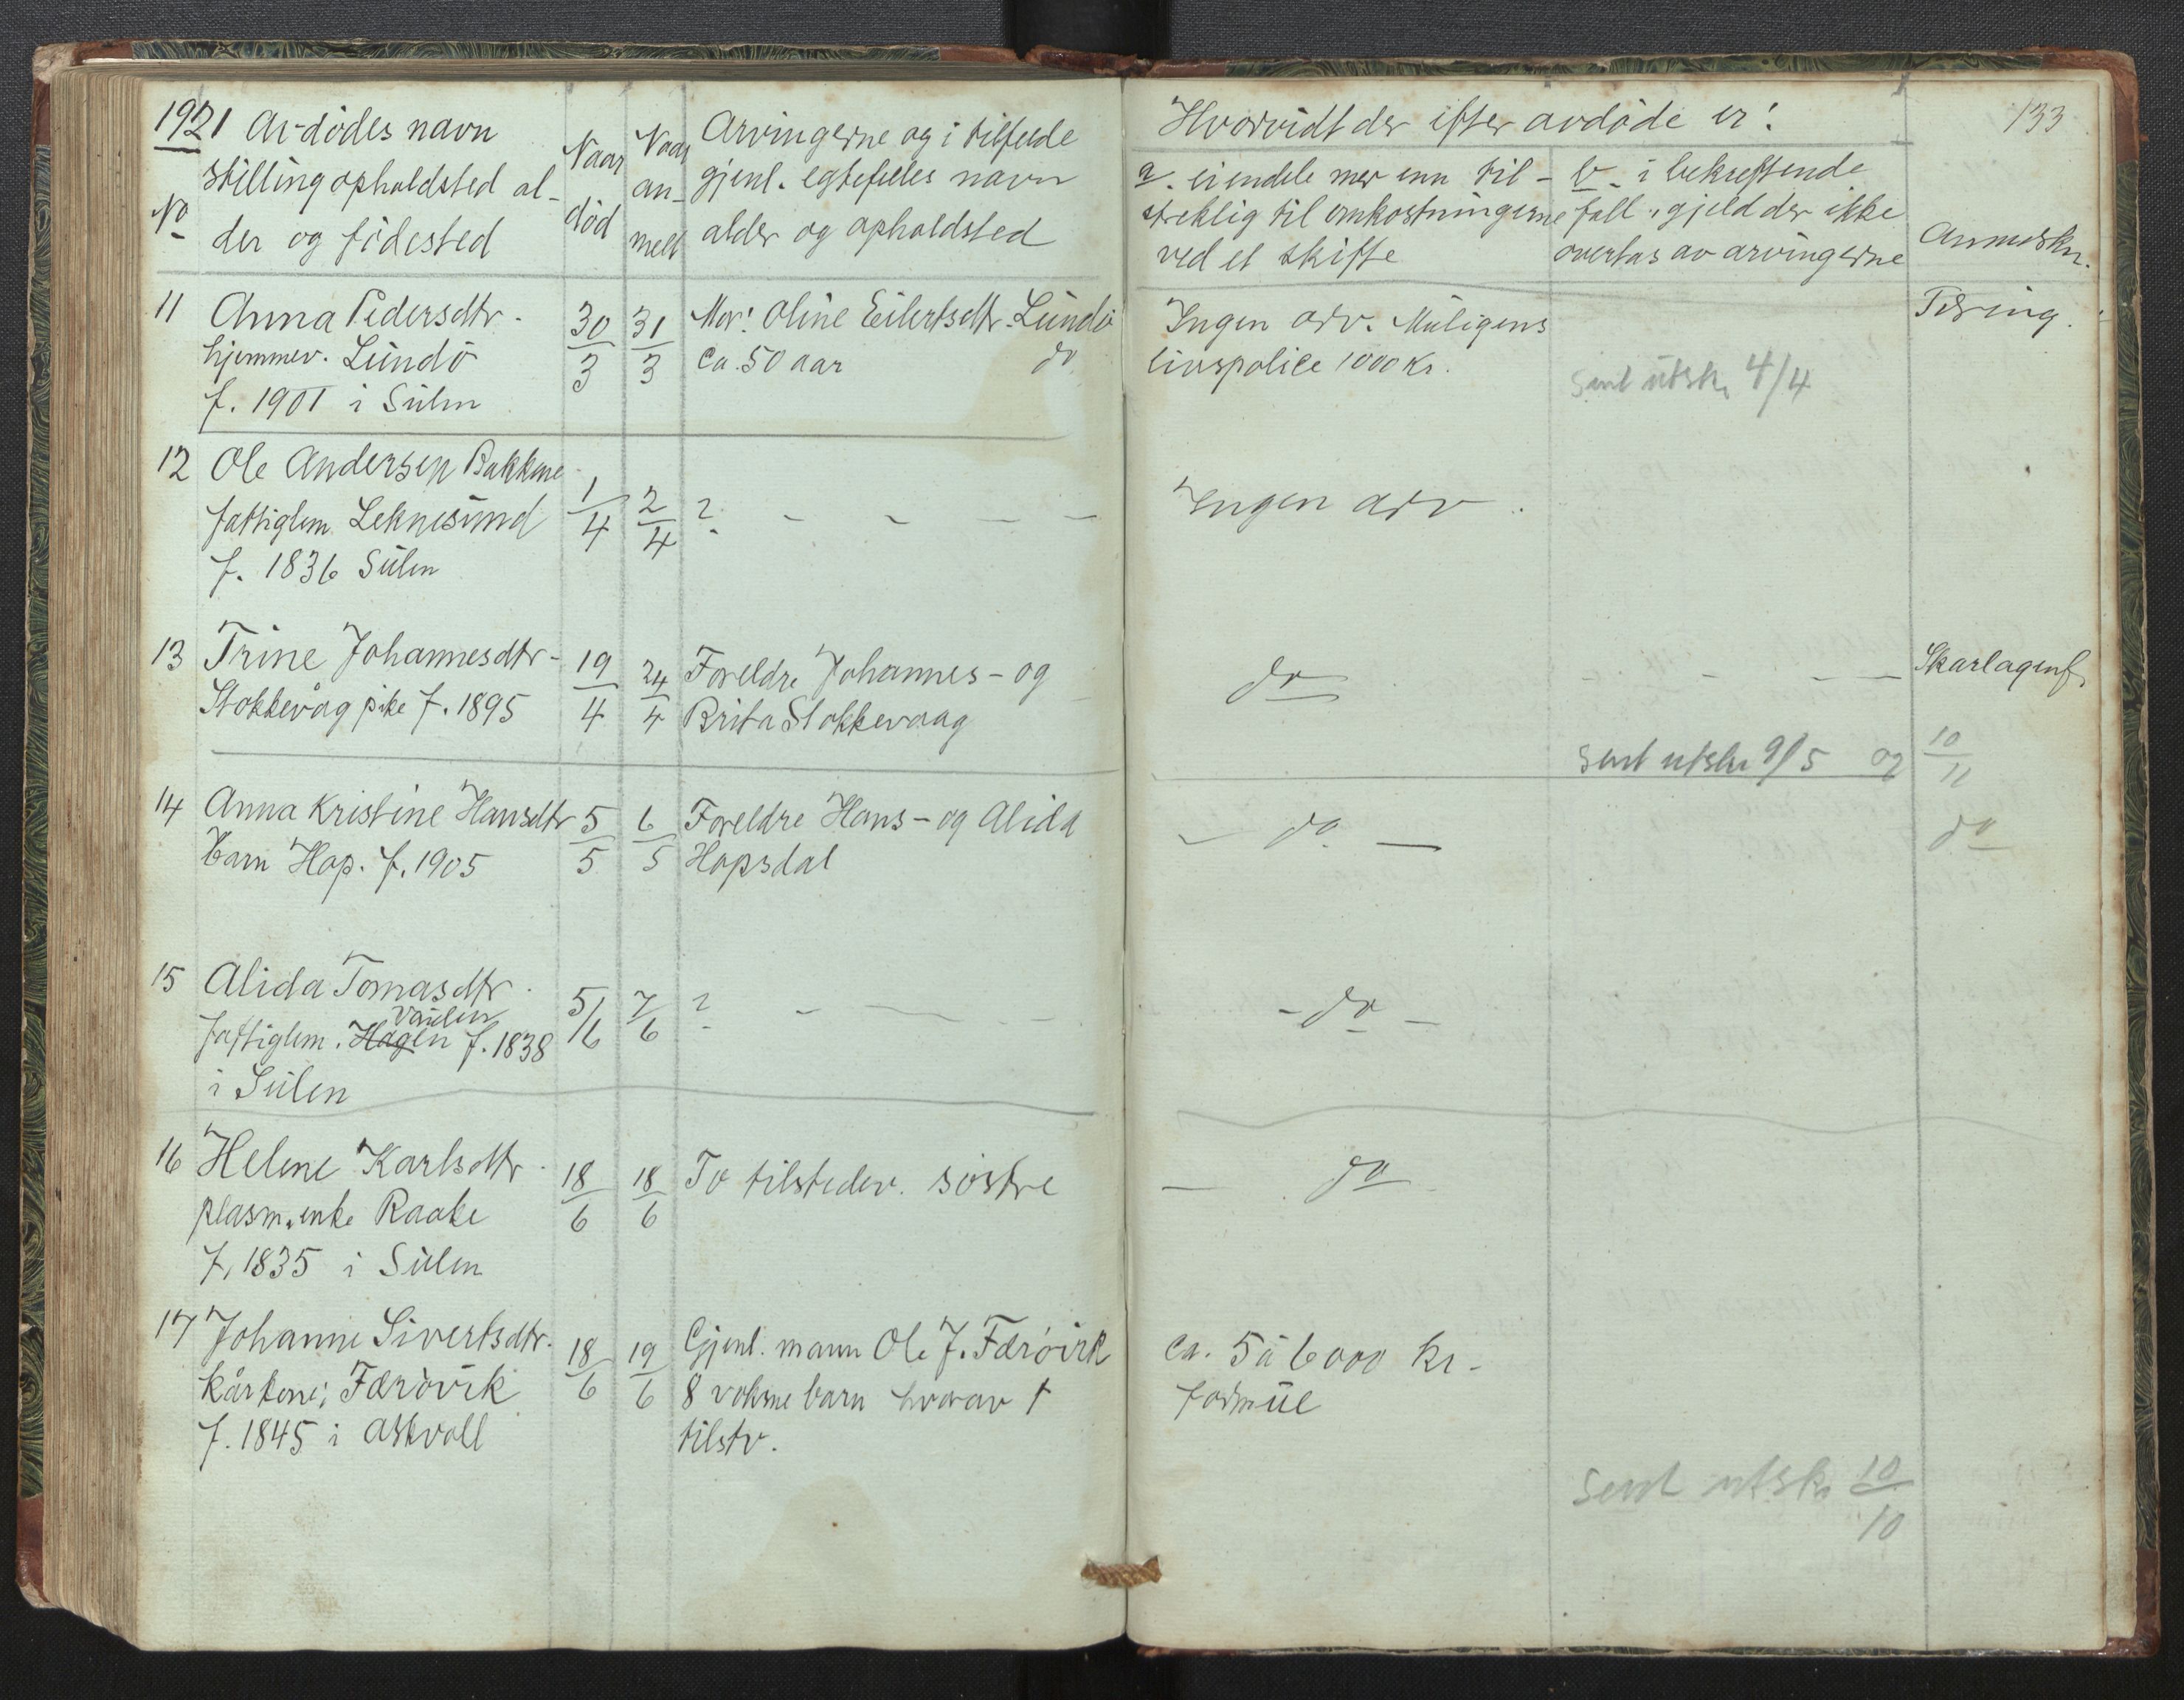 1921 Avdødes navn
stilling opholdsted al-
No der og fødested
Naar
død
Naar
an-
melt
Arvingerne og i tilfelde
gjenl. egtefelles navn
alder og opholdsted
Hvorvidt der efter avdøde er:
133
a. eiendele mer enn til-
strekkelig til omkostningerne
ved et skifte
b. i bekreftende
fall, gjeld der ikke
overtas av arvingerne
Anmerkn.
11 Anna Pedersdtr. 30/3 31/3 Mor: Oline Eilertsdtr. Lundø Ingen arv. Muligens Tæring.
hjemmev. Lundø ca. 50 aar do livspolice 1000 kr.
f. 1901 i Sulen sent utskr 4/4
12 Ole Andersen Bakkene
fattiglem. Leknesund 1/4 2/4 ? - - - - Ingen arv.
f. 1836 Sulen
13 Trine Johannesdtr- 19/4 24/4 Foreldre Johannes - og do - - - - Skarlagenf.
Stokkevåg pike f. 1895 Brita Stokkevaag
sent utskr 9/5 og 10/11
14 Anna Kristine Hansdtr 5/5 6/5 Foreldre Hans - og Alida - do - do
Barn Hop. f. 1905 Hopsdal
15 Alida Tomasdtr. 5/6 7/6 ? - - - - - do -
Vaulen
fattiglem. Hagen f. 1838
i Sulen
16 Helene Karlsdtr. 18/6 18/6 To tilstedev. søstre - do -
plasm.enke Raake
f. 1835 i Sulen
17 Johanne Sivertsdtr. 18/6 19/6 Gjenl. mann Ole J. Færøvik ca. 5 à 6000 kr.
kårkone, Færøvik 8 voksne barn hvorav 1 formue
f. 1845 i Askvoll tilstv.
Sent utskr 10/10